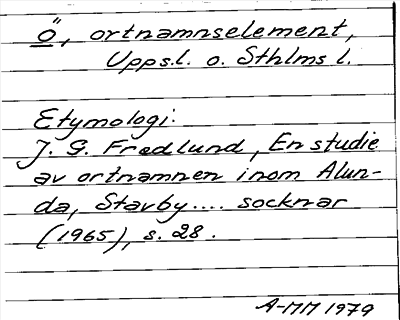 ö, ortnamnselement,
Upps.l. o. Sthlms l.
Etymologi:
J. G. Fredlund, En studie
av ortnamnen inom Alun-
da, Stavby.... socknar
(1965), s. 28.
A-MM 1979